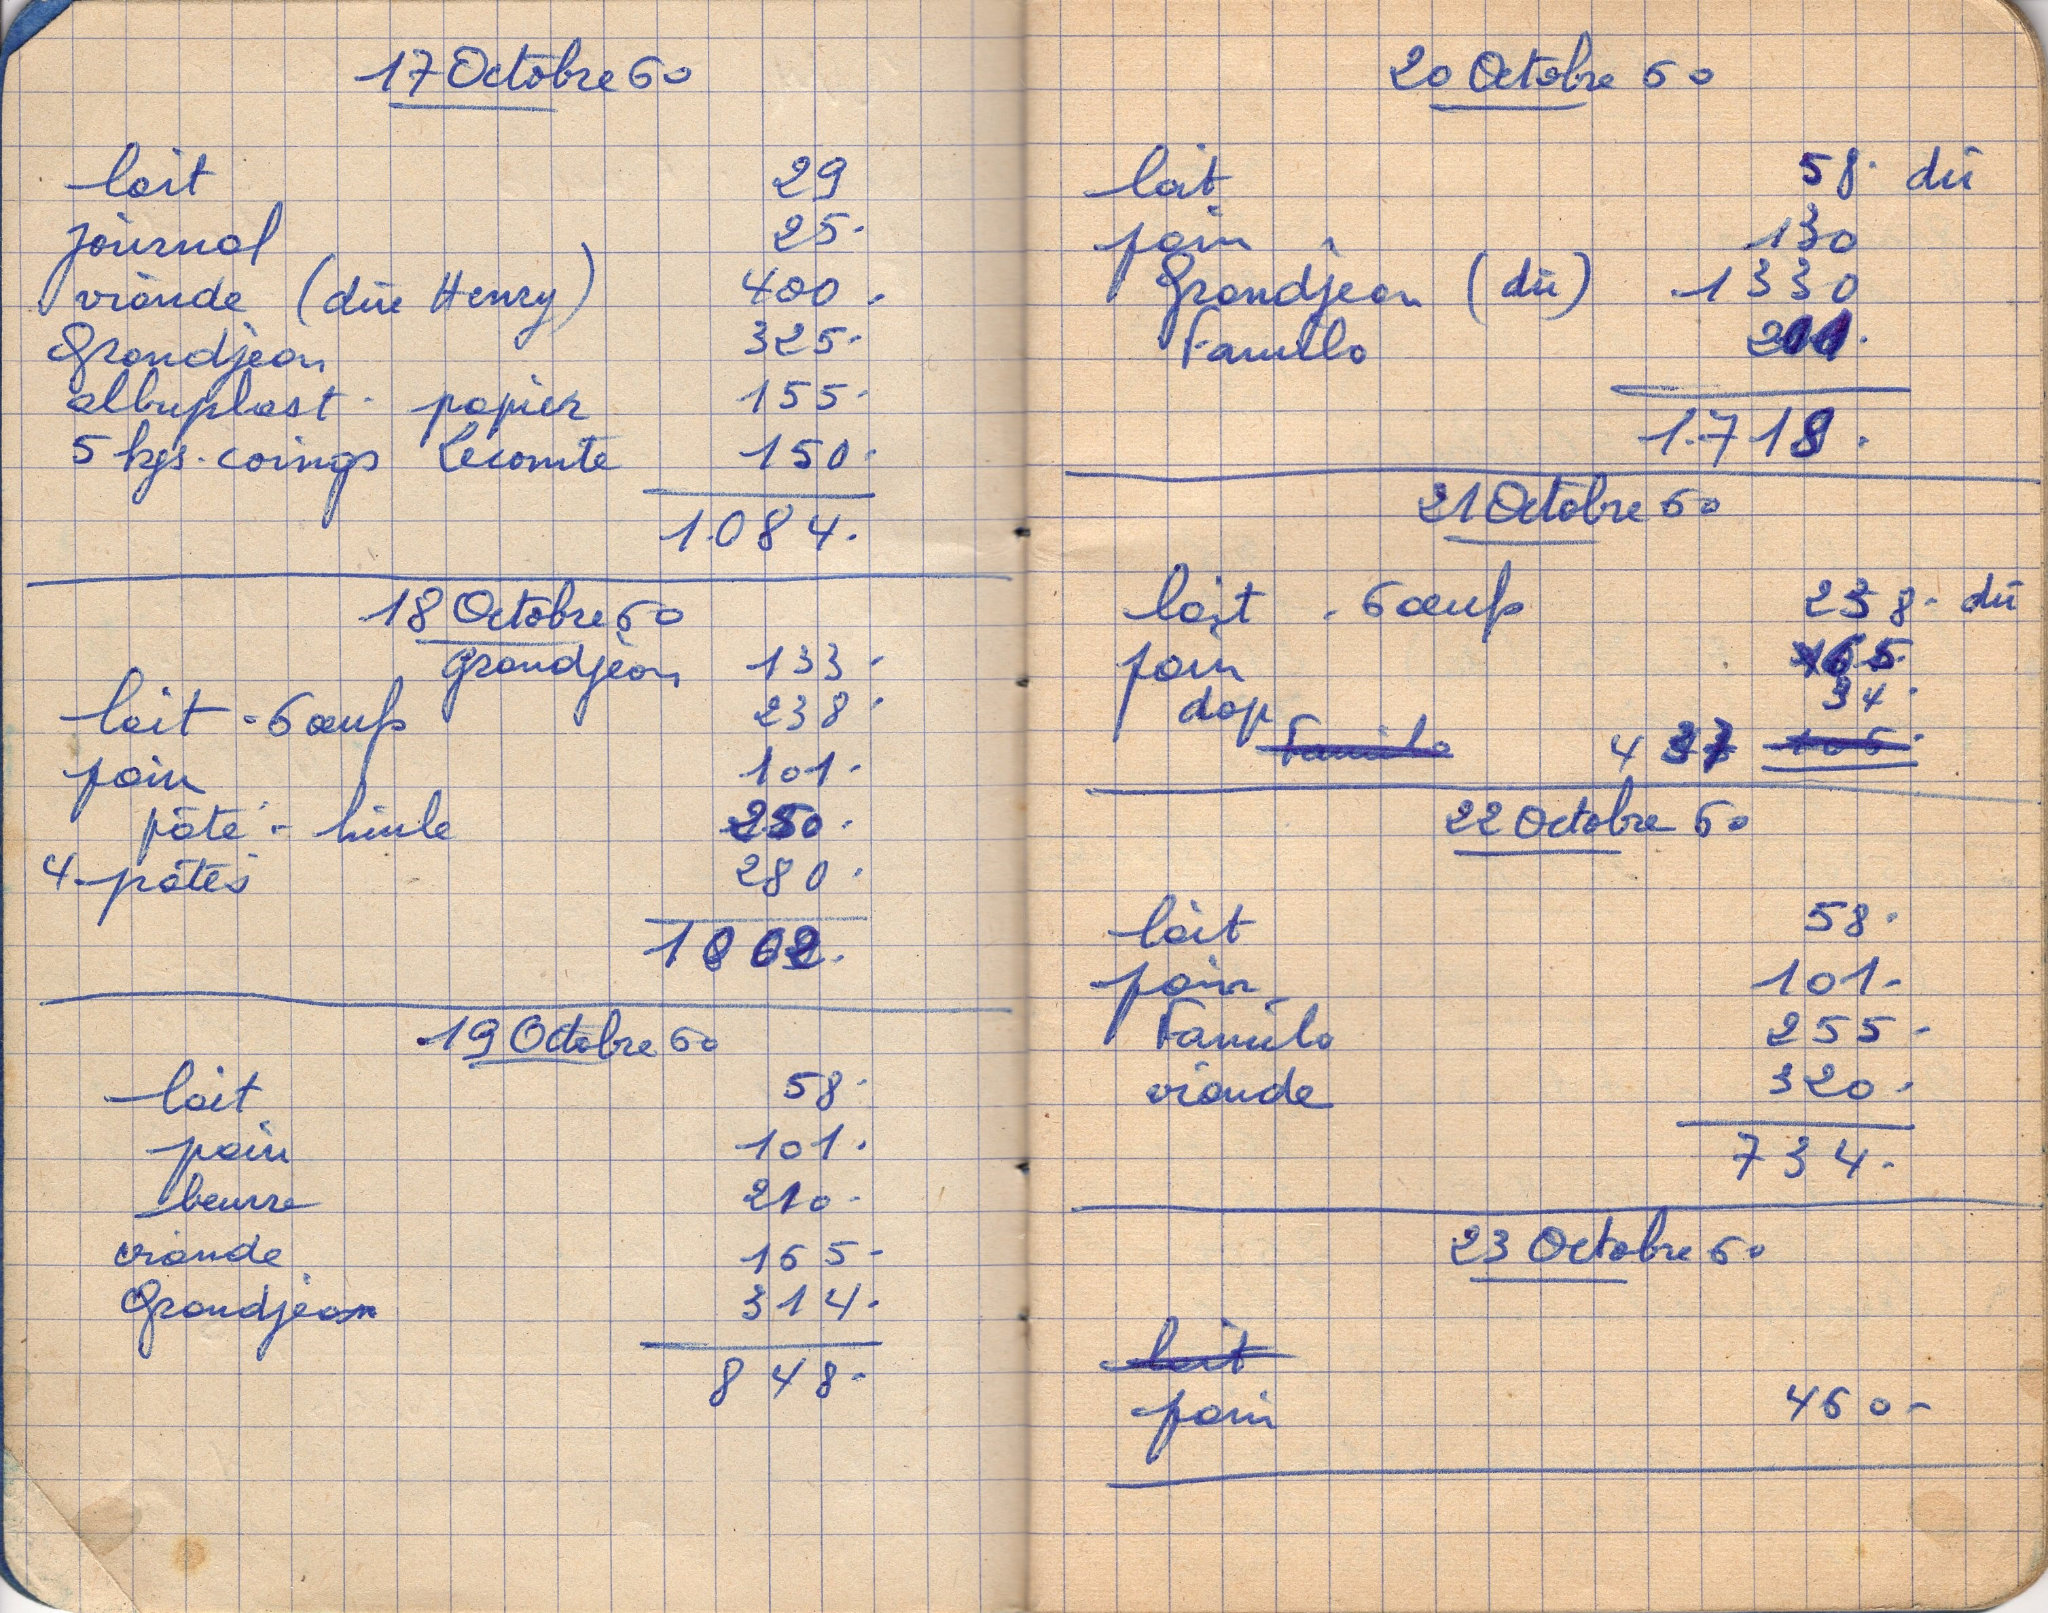 17 Octobre 60
lait 29
journal 25.
viande (dûe Henry) 400.
Grandjean 325.
albuplast. papier 155.
5 kgs. coings Lecomte 150.
1.084.
18 Octobre 60
Grandjean 133.
lait - 6 œufs 238.
pain 101.
pâté - huile 250.
4 pâtes 280.
1002.
19 Octobre 60
lait 58.
pain 101.
beurre 210.
viande 165-
Grandjean 314.
848.
20 Octobre 60
lait 58. dû
pain 130
Grandjean (dû) 1330
Familo 200.
1.718.
21 Octobre 60
lait - 6 œufs 238. dû
pain 165.
dop 34.
Familo 437 106.
22 Octobre 60
lait 58.
pain 101.
Familo 255.
viande 320.
734.
23 Octobre 60
lait
pain 460-